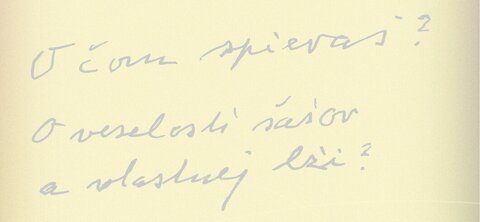 O čom spievaš?
O veselosti šašov
a vlastnej lži?